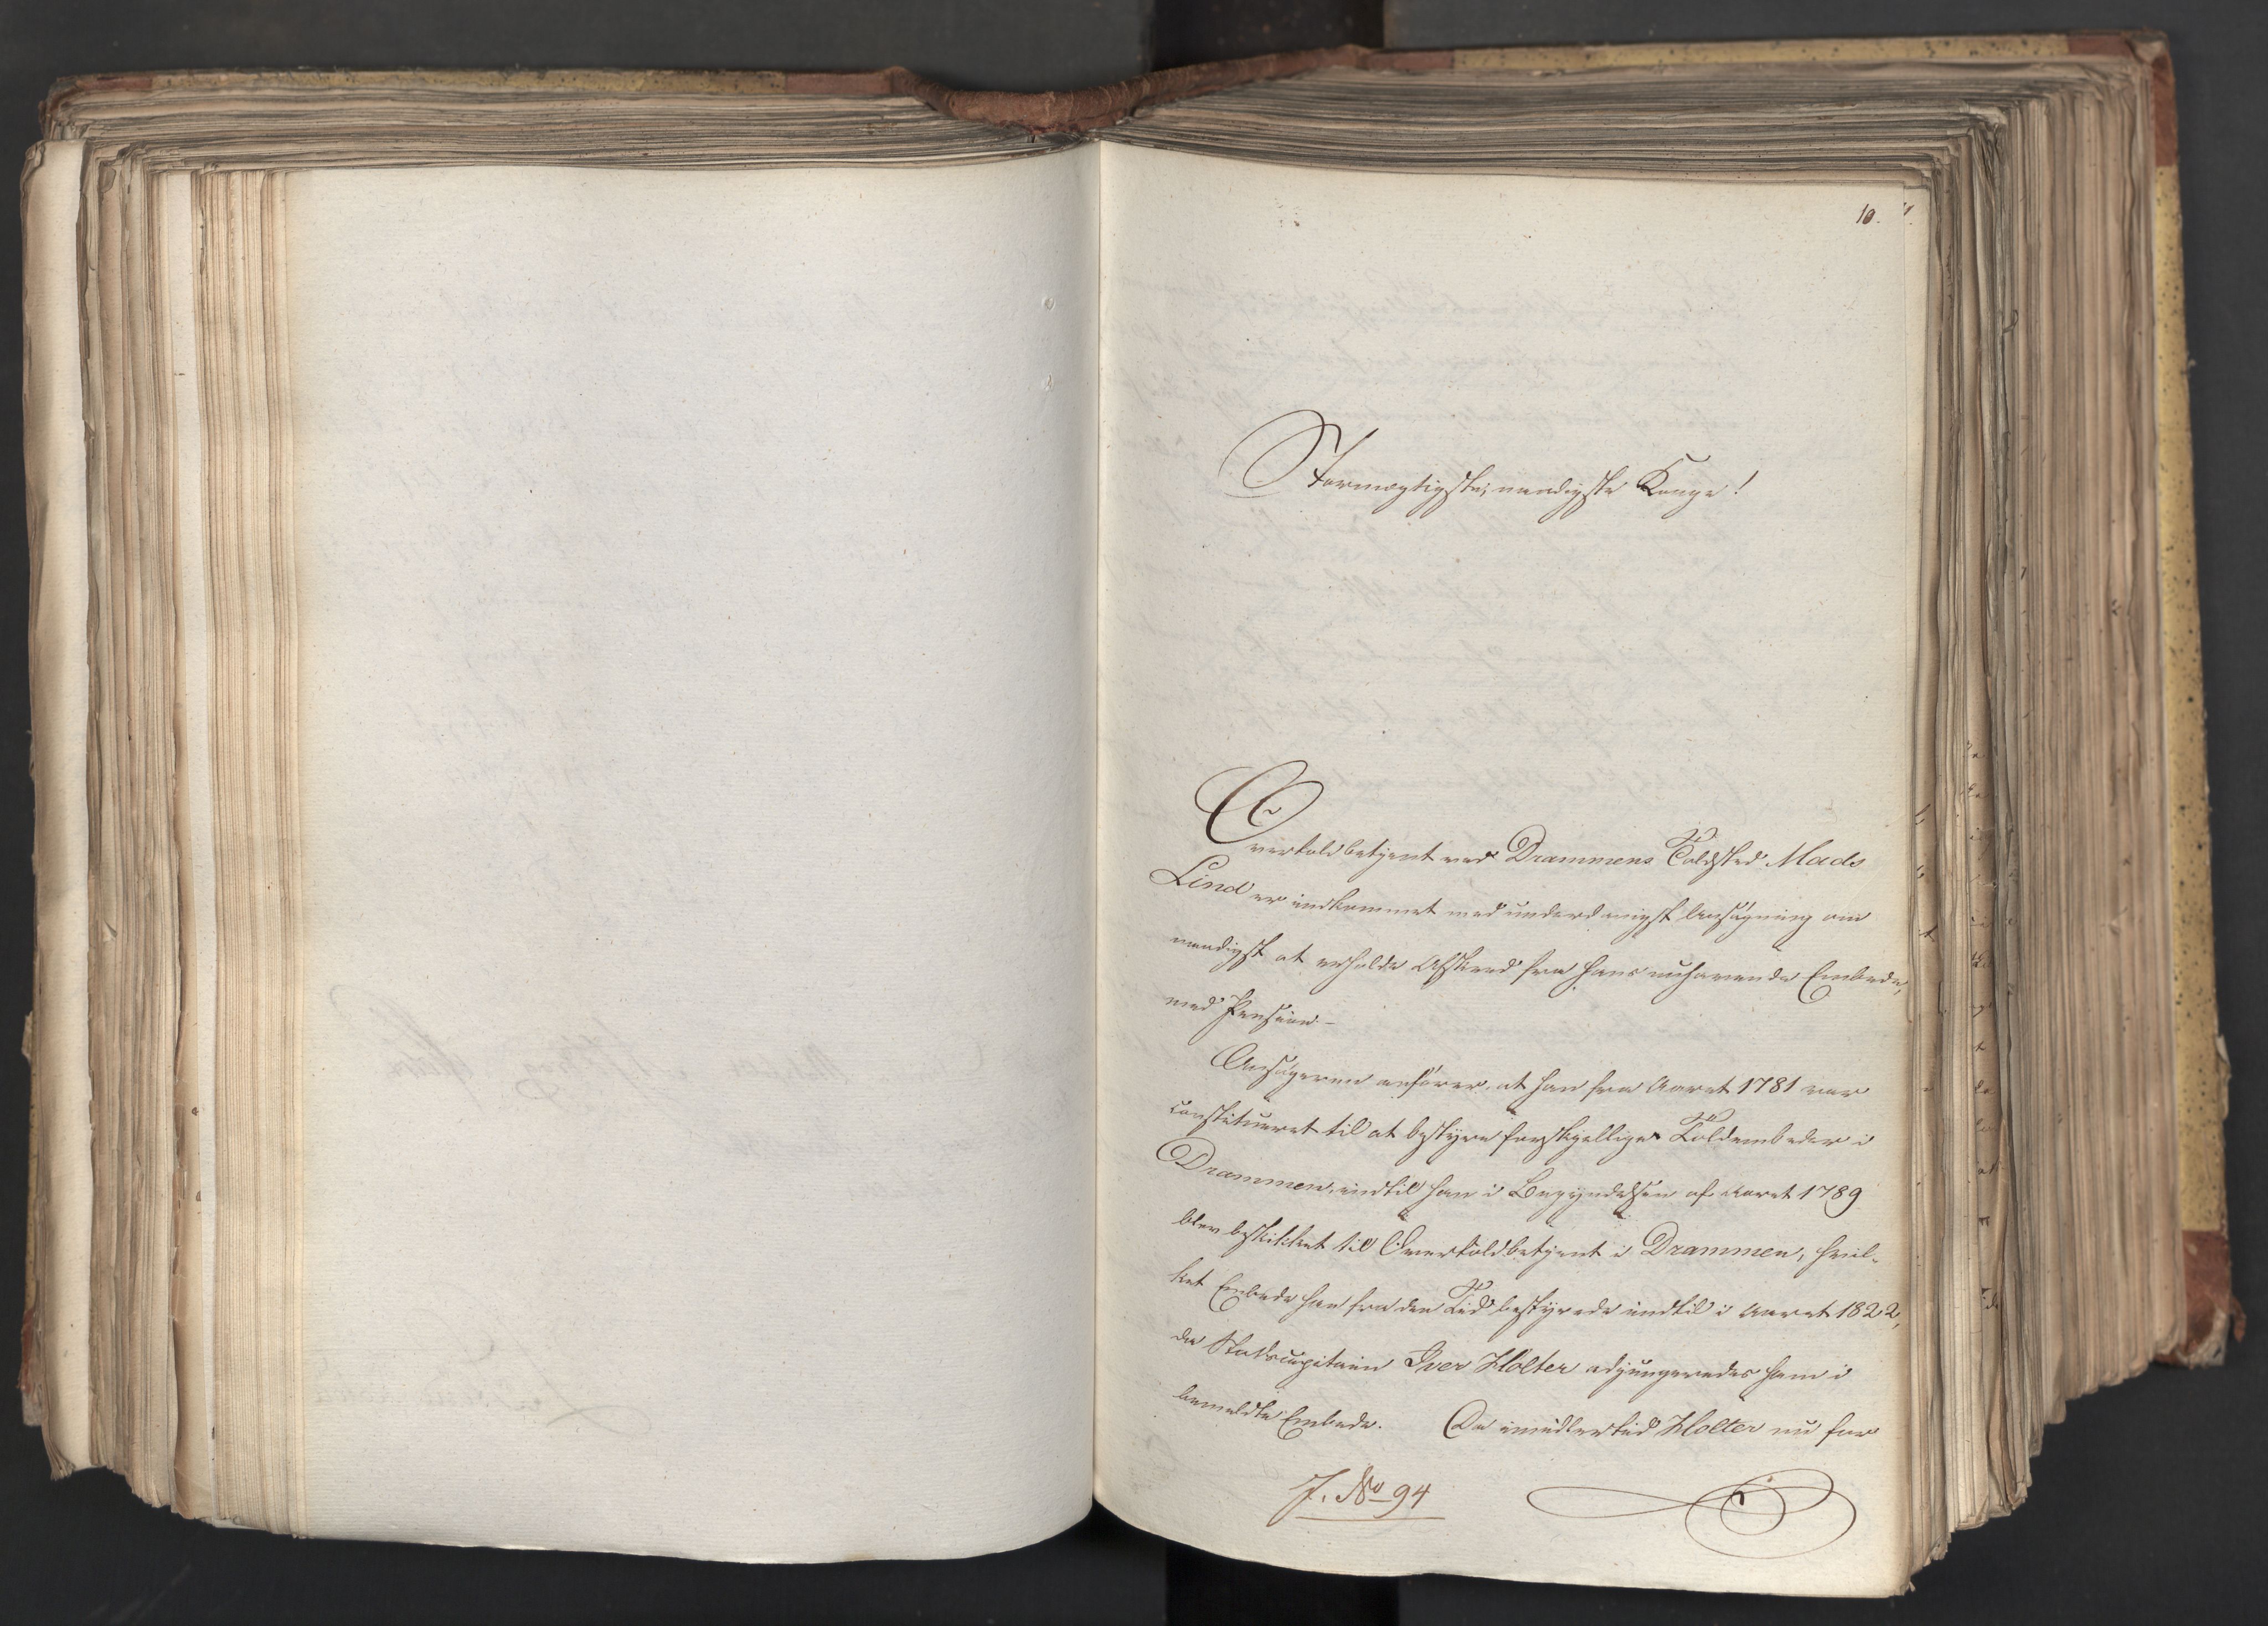 10.
Stormægtigste, naadigste Konge!
Overtoldbetjent ved Drammens Toldsted Mads
Lind er indkommet med underdanigst Ansøgning om
naadigst at erholde Afskeed fra hans nuhavende Embede,
med Pension. -
Ansøgeren anfører, at han fra Aaret 1781 var
constitueret til at bestyre forskjellige Toldembeder i
Drammen, indtil han i Begyndelsen af Aaret 1789
blev beskikket til Overtoldbetjent i Drammen, hvil-
ket Embede han fra den Tid bestyrede indtil i Aaret 1822,
da Stadscapitain Iver Holter adjungeredes ham i
bemeldte Embede. Da imidlertid Holter nu har
J. No 94